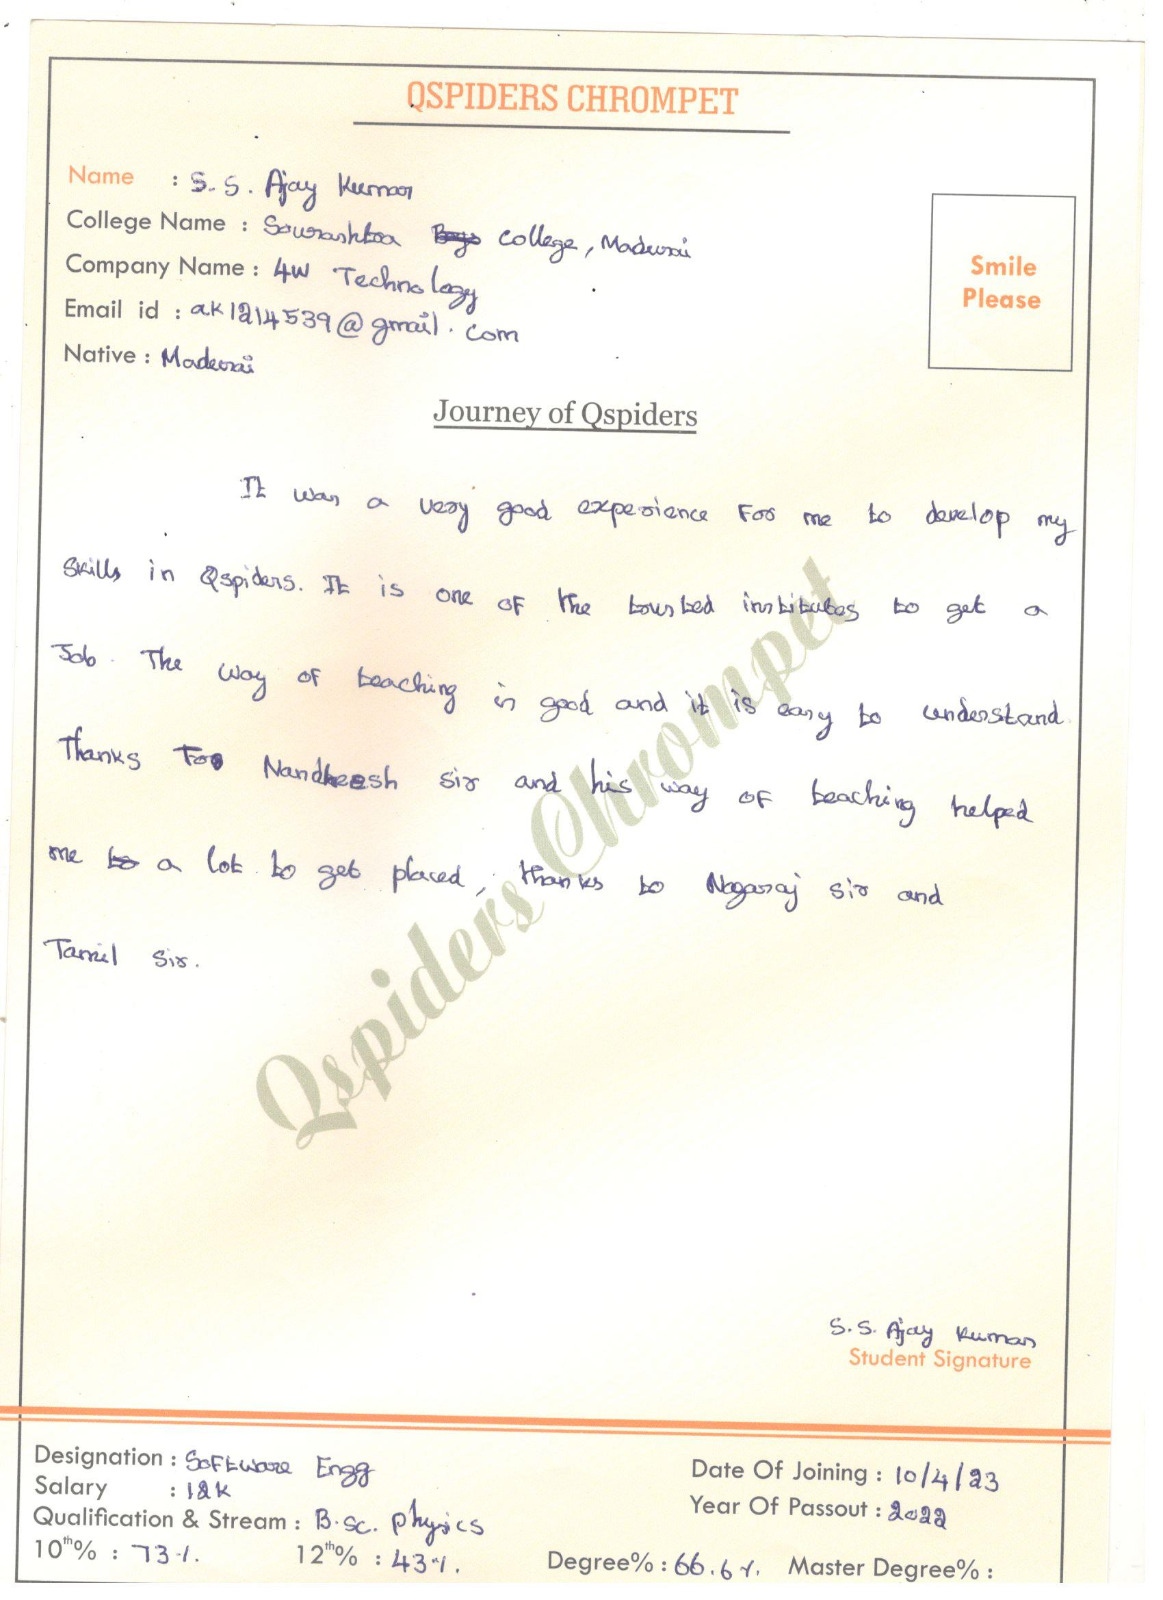 QSPIDERS CHROMPET
Name : S. S. Ajay Kumar
College Name : Sourashtra Boys College, Madurai
Company Name : 4W Technology
Email id : ak1214539@gmail.com
Native : Madurai
Smile
Please
Journey of Qspiders
It was a very good experience For me to develop my
skills in Qspiders. It is one of the trusted institutes to get a
Job. The way of teaching is good and it is easy to understand.
Thanks To Nandheesh sir and his way of teaching helped
me to a lot to get placed, thanks to Nagaraj sir and
Tamil Sir.
Qspiders Chrompet
S.S. Ajay Kumar
Student Signature
Designation : Software Engg
Date Of Joining : 10/4/23
Salary : 12k
Year Of Passout : 2022
Qualification & Stream : B.sc. physics
10th% : 73%. 12th% : 43%. Degree% : 66.6%. Master Degree% :